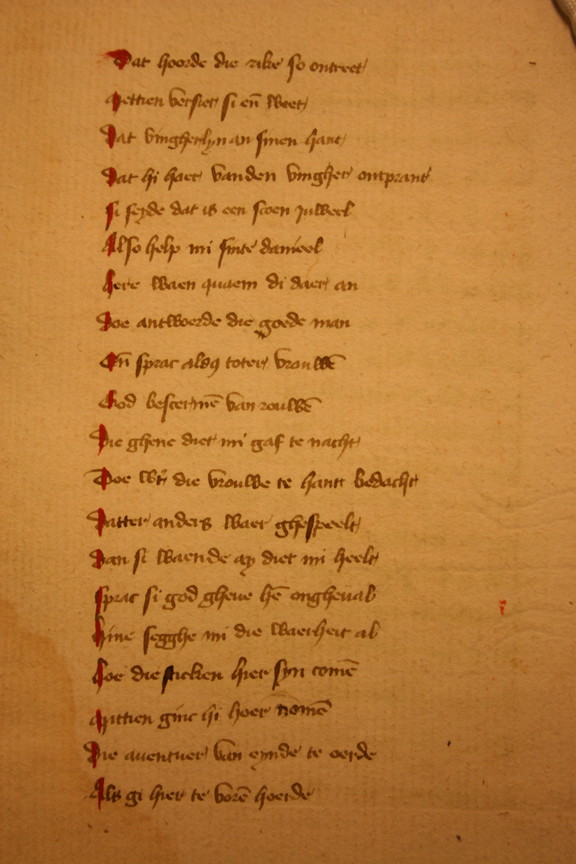 Dat hoorde die rike so ontreet
Mettien versiet si en̄ weet
Dat vingherlyn an sinen hant
Dat hi haer vanden vingher ontprant
Si seyde dat is een scoen juweel
Also help mi sinte danieel
Here waen quaem di daer an
Doe antwoerde die goede man
En̄ sprac aldꝰ toter vrouwē
God bescermē van rouwē
Die ghene diet mi gaf te nacht
Doe die vrouwe te hant bedacht
Datter anders waer ghespeelt
Dan si waende ay diet mi heelt
Sprac si god gheue hē ongheual
Hine segghe mi die waerheit al
Hoe die sticken hier syn comē
Mittien ginc hi hoer nomē
Die auentuer van eynde te oerde
Als gi hier te vorē hoerde